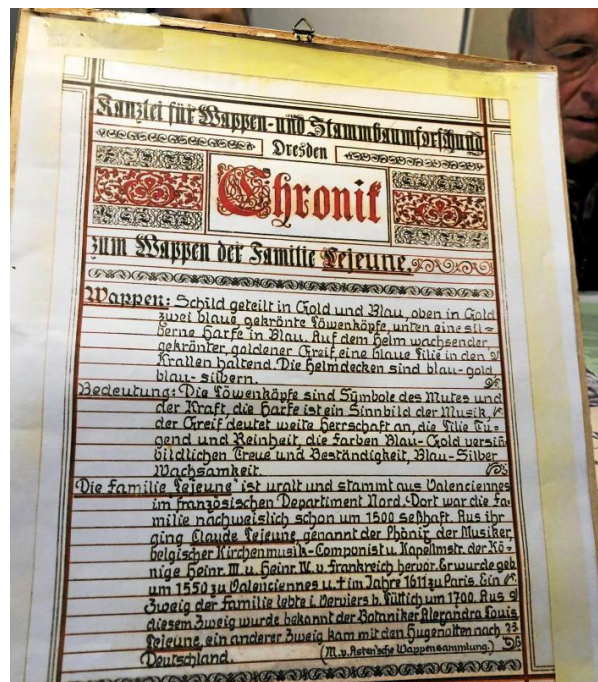 Kanzlei für Wappen-und Stammbaumforschung
Dresden
Chronik
zum Wappen der Familie Lejeune.
Wappen: Schild geteilt in Gold und Blau, oben in Gold
zwei blaue, gekrönte Löwenköpfe, unten eine sil-
berne Harfe in Blau. Auf dem Helm wachsender,
gekrönter, goldener Greif, eine blaue Lilie in den
Krallen haltend. Die Helmdecken sind blau-gold,
blau-silbern.
Bedeutung: Die Löwenköpfe sind Symbole des Mutes und
der Kraft, die Harfe ist ein Sinnbild der Musik,
der Greif deutet weite Herrschaft an, die Lilie Tu-
gend und Reinheit, die Farben Blau-Gold versinn
bildlichen Treue und Beständigkeit, Blau-Silber
Wachsamkeit.
Die Familie „Lejeune" ist uralt und stammt aus Valenciennes
im französischen Departiment Nord. Dort war die Fa-
milie nachweislich schon um 1500 seßhaft. Aus ihr
ging Claude Lejeune, genannt der Phönix der Musiker,
belgischer Kirchenmusik-Componist u. Kapellmstr. der Kö-
nige Heinr. III. u. Heinr. IV. v. Frankreich hervor. Er wurde geb.
um 1550 zu Valenciennes u. † im Jahre 1611 zu Paris. Ein
Zweig der Familie lebte i. Verviers b. Lüttich um 1700. Aus
diesem Zweig wurde bekannt der Botaniker Alexandra Louis
Lejeune, ein anderer Zweig kam mit den Hugenotten nach
Deutschland. (M. v. Asten'sche Wappensammlung.)